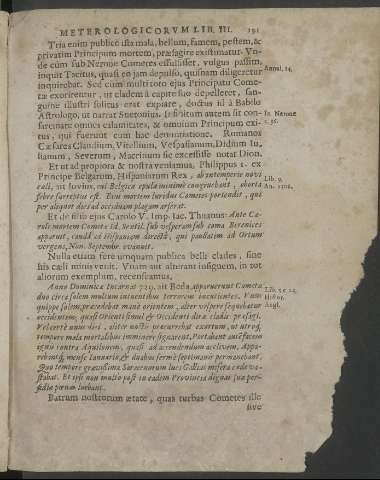 METEROLOGICORVM LIB. III. 191
Tria enim publico ista mala, bellum, famem, pestem, &
privatim Principum mortem, præsagire existimatur. Un-
de cùm sub Nerone Cometes effulsisset, vulgus passim,
inquit Tacitus, quasi eo jam depulso, quisnam diligeretur Annal. 14.
inquirebat. Sed cùm multi toto ejus Principatu Come-
tæ exorirentur, ut cladem à capite suo depelleret, san-
guine illustri solitus erat expiare, doctus id à Babilo
Astrologo, ut narrat Suetonius. autem sit con- In Nerone
surgere omnes calamitates, & omnium Principum exi- c. 36.
tus, qui fuerunt cum hac denuntiatione. Romanos
Cæsares Claudium, Vitellium, Vespasianum, Didium Iu-
lianum, Severum, Macrinum sic excessisse notat Dion.
Et ut ad propiora & nostra veniamus, Philippus I. ex
Principe Belgarum, Hispaniarum Rex, ab intemperie novi Lib. 9.
cæli, ait Iovius, cui Belgica epula minimè congruebant, aborta An. 1506.
febre sureptus est. Eius mortem surdus Cometes portendit, qui
per aliquot dies ad occiduam plagam arserat.
Et de filio ejus Carolo V. Imp. Iac. Thuanus: Ante Ca-
roli mortem Cometa Id. Sextil. sub vesperam sub coma Berenices
apparuit, caudâ ad Hispaniam directâ, qui paullatim ad Ortum
vergens, Non. Septembr. evanuit.
Nulla etiam ferè umquam publica belli clades, sine
his cæli minis venit. Unam aut alteram insignem, in tot
aliorum exemplum, recenseamus.
Anno Dominicæ Incarnat. 729. ait Beda, apparuerunt Cometæ Lib. 5. c. 24.
duo circa solem multum intuentibus terrorem incutientes. Vnus Histor.
quippe solem præcedebat manè orientem, alter vesperè sequebatur Angl.
occidentem, quasi Orienti simul & Occidenti diræ cladis præsagi.
Vel certè unus diei, alter nocti præcurrebat exortum, ut utroq́;
tempore mala mortalibus imminere signarent. Portabant autē facem
ignis contra Aquilonem, quasi ad accendendum acclivem. Appa-
rebantq́; mense Ianuario, & duabus fermè septimanis permanebant.
Quo tempore gravissima Sarcenorum lues Gallias misera cæde va-
stabat. Et ipsi non multo post in eadem Provincia dignas suæ per-
fidiæ pœnas luebant.
Patrum nostrorum ætate, quas turbas Cometes ille
sive